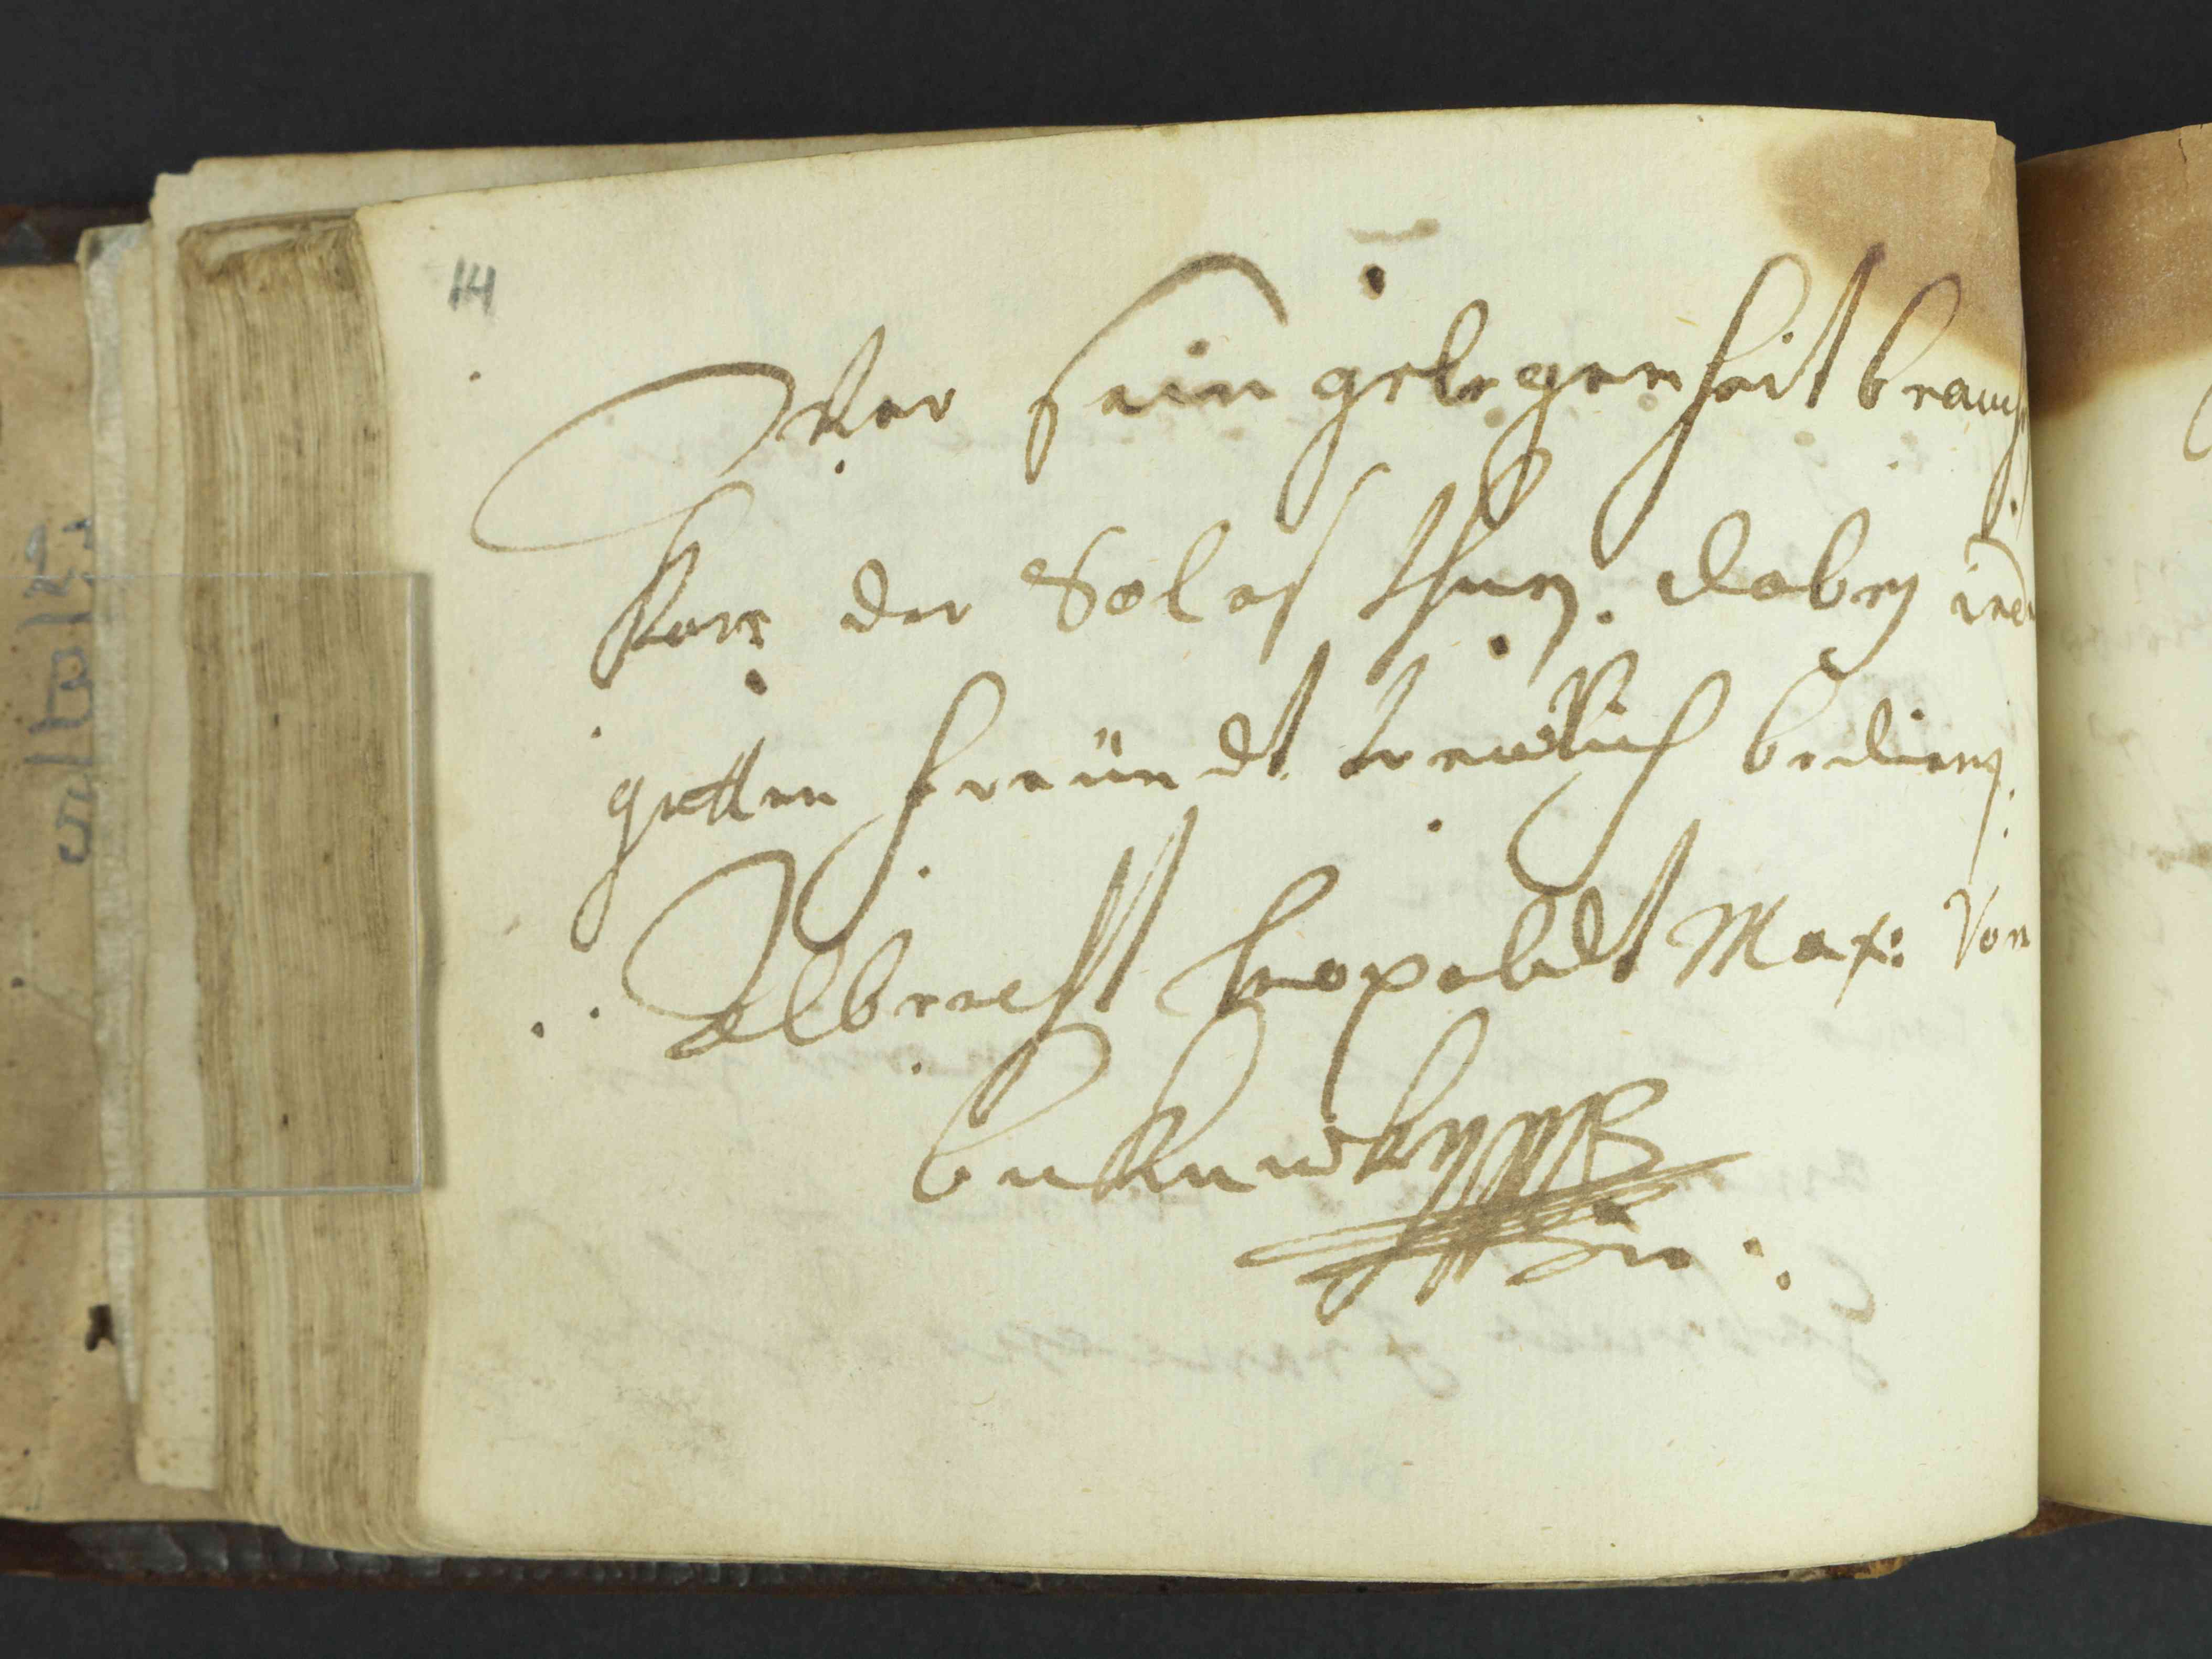 14
Wer sein gelegenheit brauch
kan der Soles thun. dabey ied
gutten freündt trewlich bedienen.
Albrecht Leopoldt Max: Von